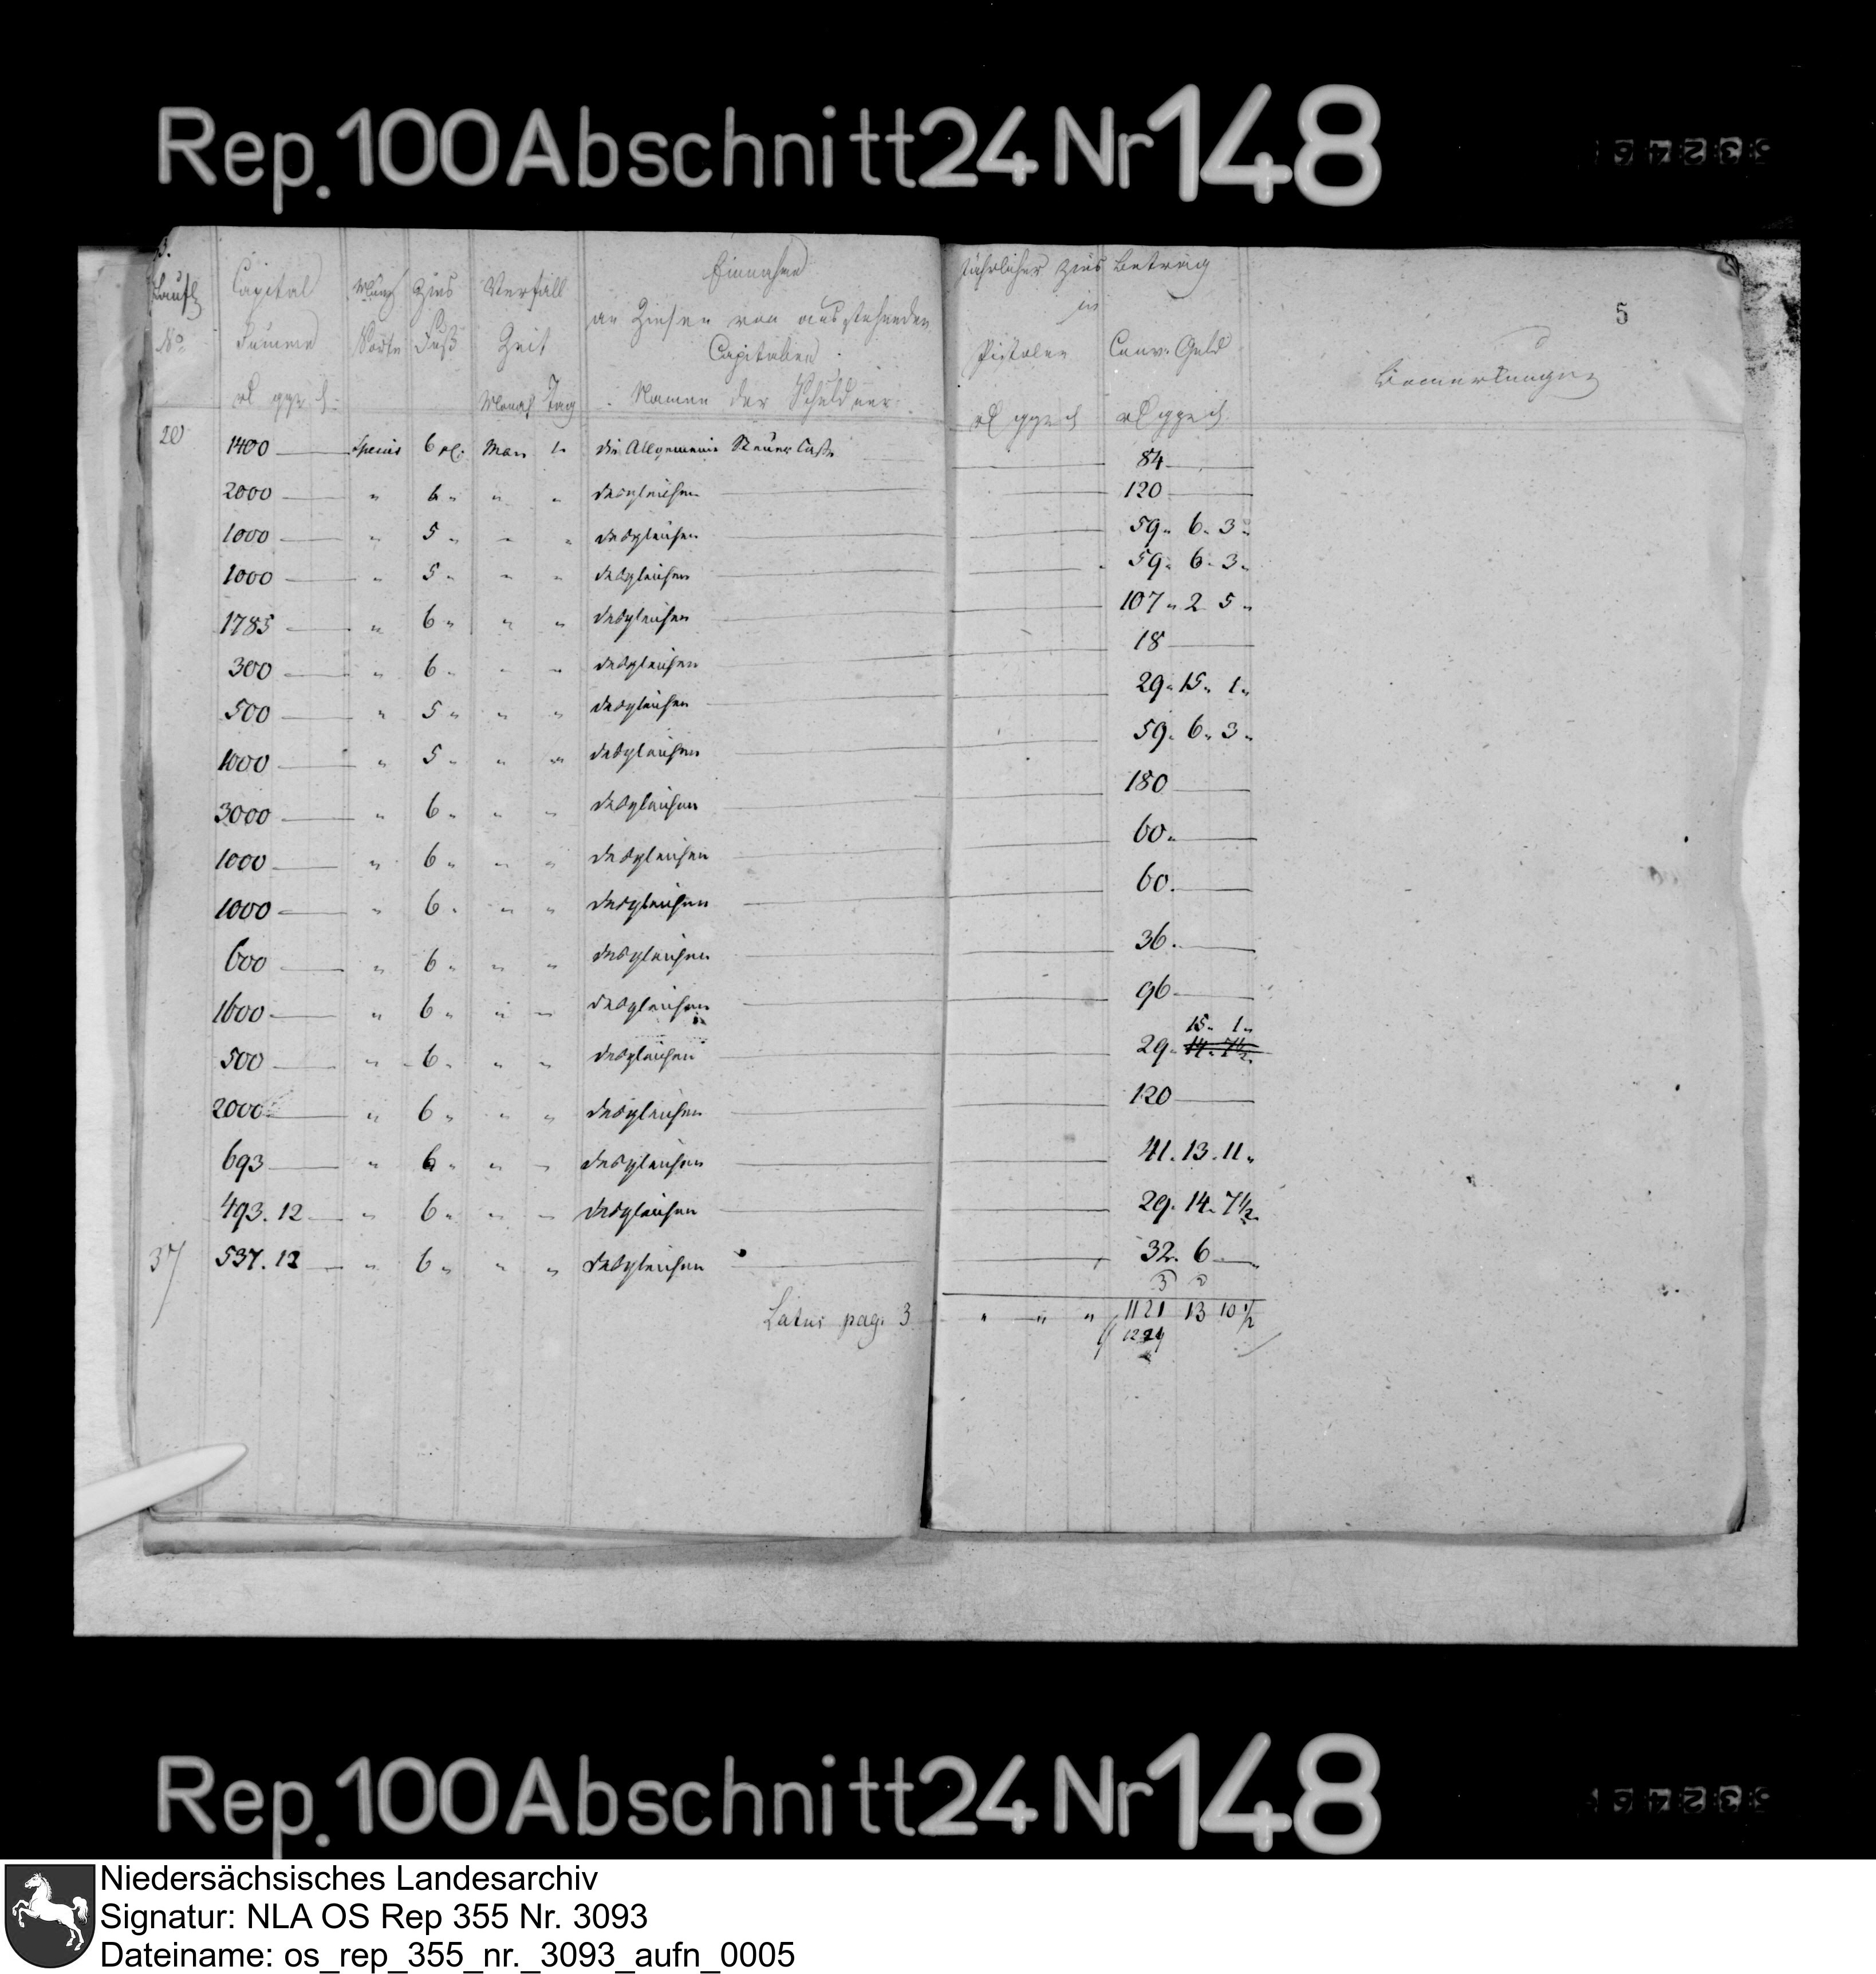 Rep. 100 Abschnitt 24 Nr 148
3.
5
Laufd
No
Capital
Summe
rl ggr d
Münz
Sorte
Zins
Fuß
Verfall
Zeit
Monat Tag
Einnahme
an Zinsen von ausstehenden
Capitalien.
Namen der Schuldner.
Jährlicher Zins Betrag
in
Pistolen
rl ggr d
Conv. Geld
rl ggr d
Bemerkungen
20 1400 Specis 6 pC. 1 die Allgemeine Steuer Casse 84
2000 " 6 " " " desgleichen 120
1000 " 5 " " " desgleichen 59. 6. 3.
1000 " 5 " " " desgleichen 59. 6. 3.
1785 " 6 " " " desgleichen 107. 2 5.
300 " 6 " " " desgleichen 18
500 " 5 " " " desgleichen 29. 15. 1.
1000 " 5 " " " desgleichen 59. 6. 3.
3000 " 6 " " " desgleichen 180
1000 " 6 " " " desgleichen 60.
1000 " 6 " " " desgleichen 60.
600 " 6 " " " desgleichen 36.
1600 " 6 " " " desgleichen 96
15. 1.
500 " 6 " " " desgleichen 29. 14. 7½.
2000 " 6 " " " desgleichen 120
693 " 6 " " " desgleichen 41. 13. 11.
493. 12 " 6 " " " desgleichen 29. 14. 7½.
37 537. 12 " 6 " " " desgleichen 32. 6
Latus pag. 3 " " " 1121 13 10½
1221
Rep. 100 Abschnitt 24 Nr 148
Niedersächsisches Landesarchiv
Signatur: NLA OS Rep 355 Nr. 3093
Dateiname: os_rep_355_nr._3093_aufn_0005